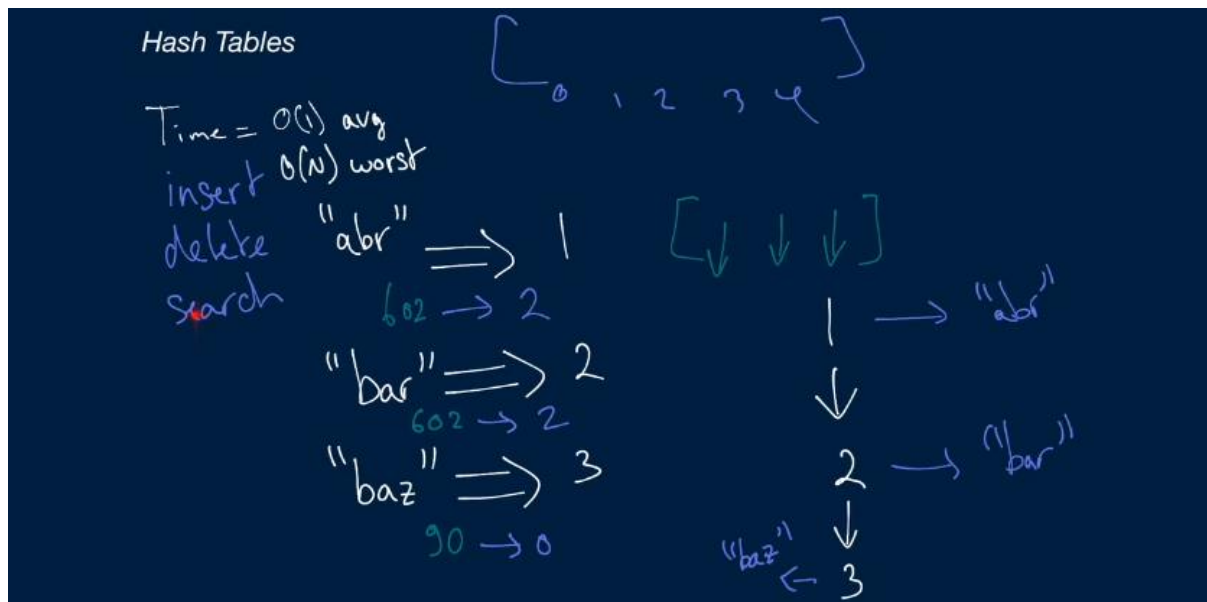 Hash Tables
0 1 2 3 4
Time = O(1) avg
O(N) worst
insert
delete
search
"abr" ⟹ 1
602 → 2
"bar" ⟹ 2
602 → 2
"baz" ⟹ 3
90 → 0
[↓ ↓ ↓]
1 → "abr"
↓
2 → "bar"
↓
"baz" ← 3